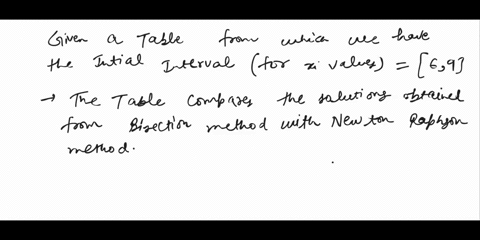 Given a Table from which we have
the Intial Interval (for xi values) = [6,9]
→ The Table compares the solutions obtained
from Bisection method with Newton Raphson
method.